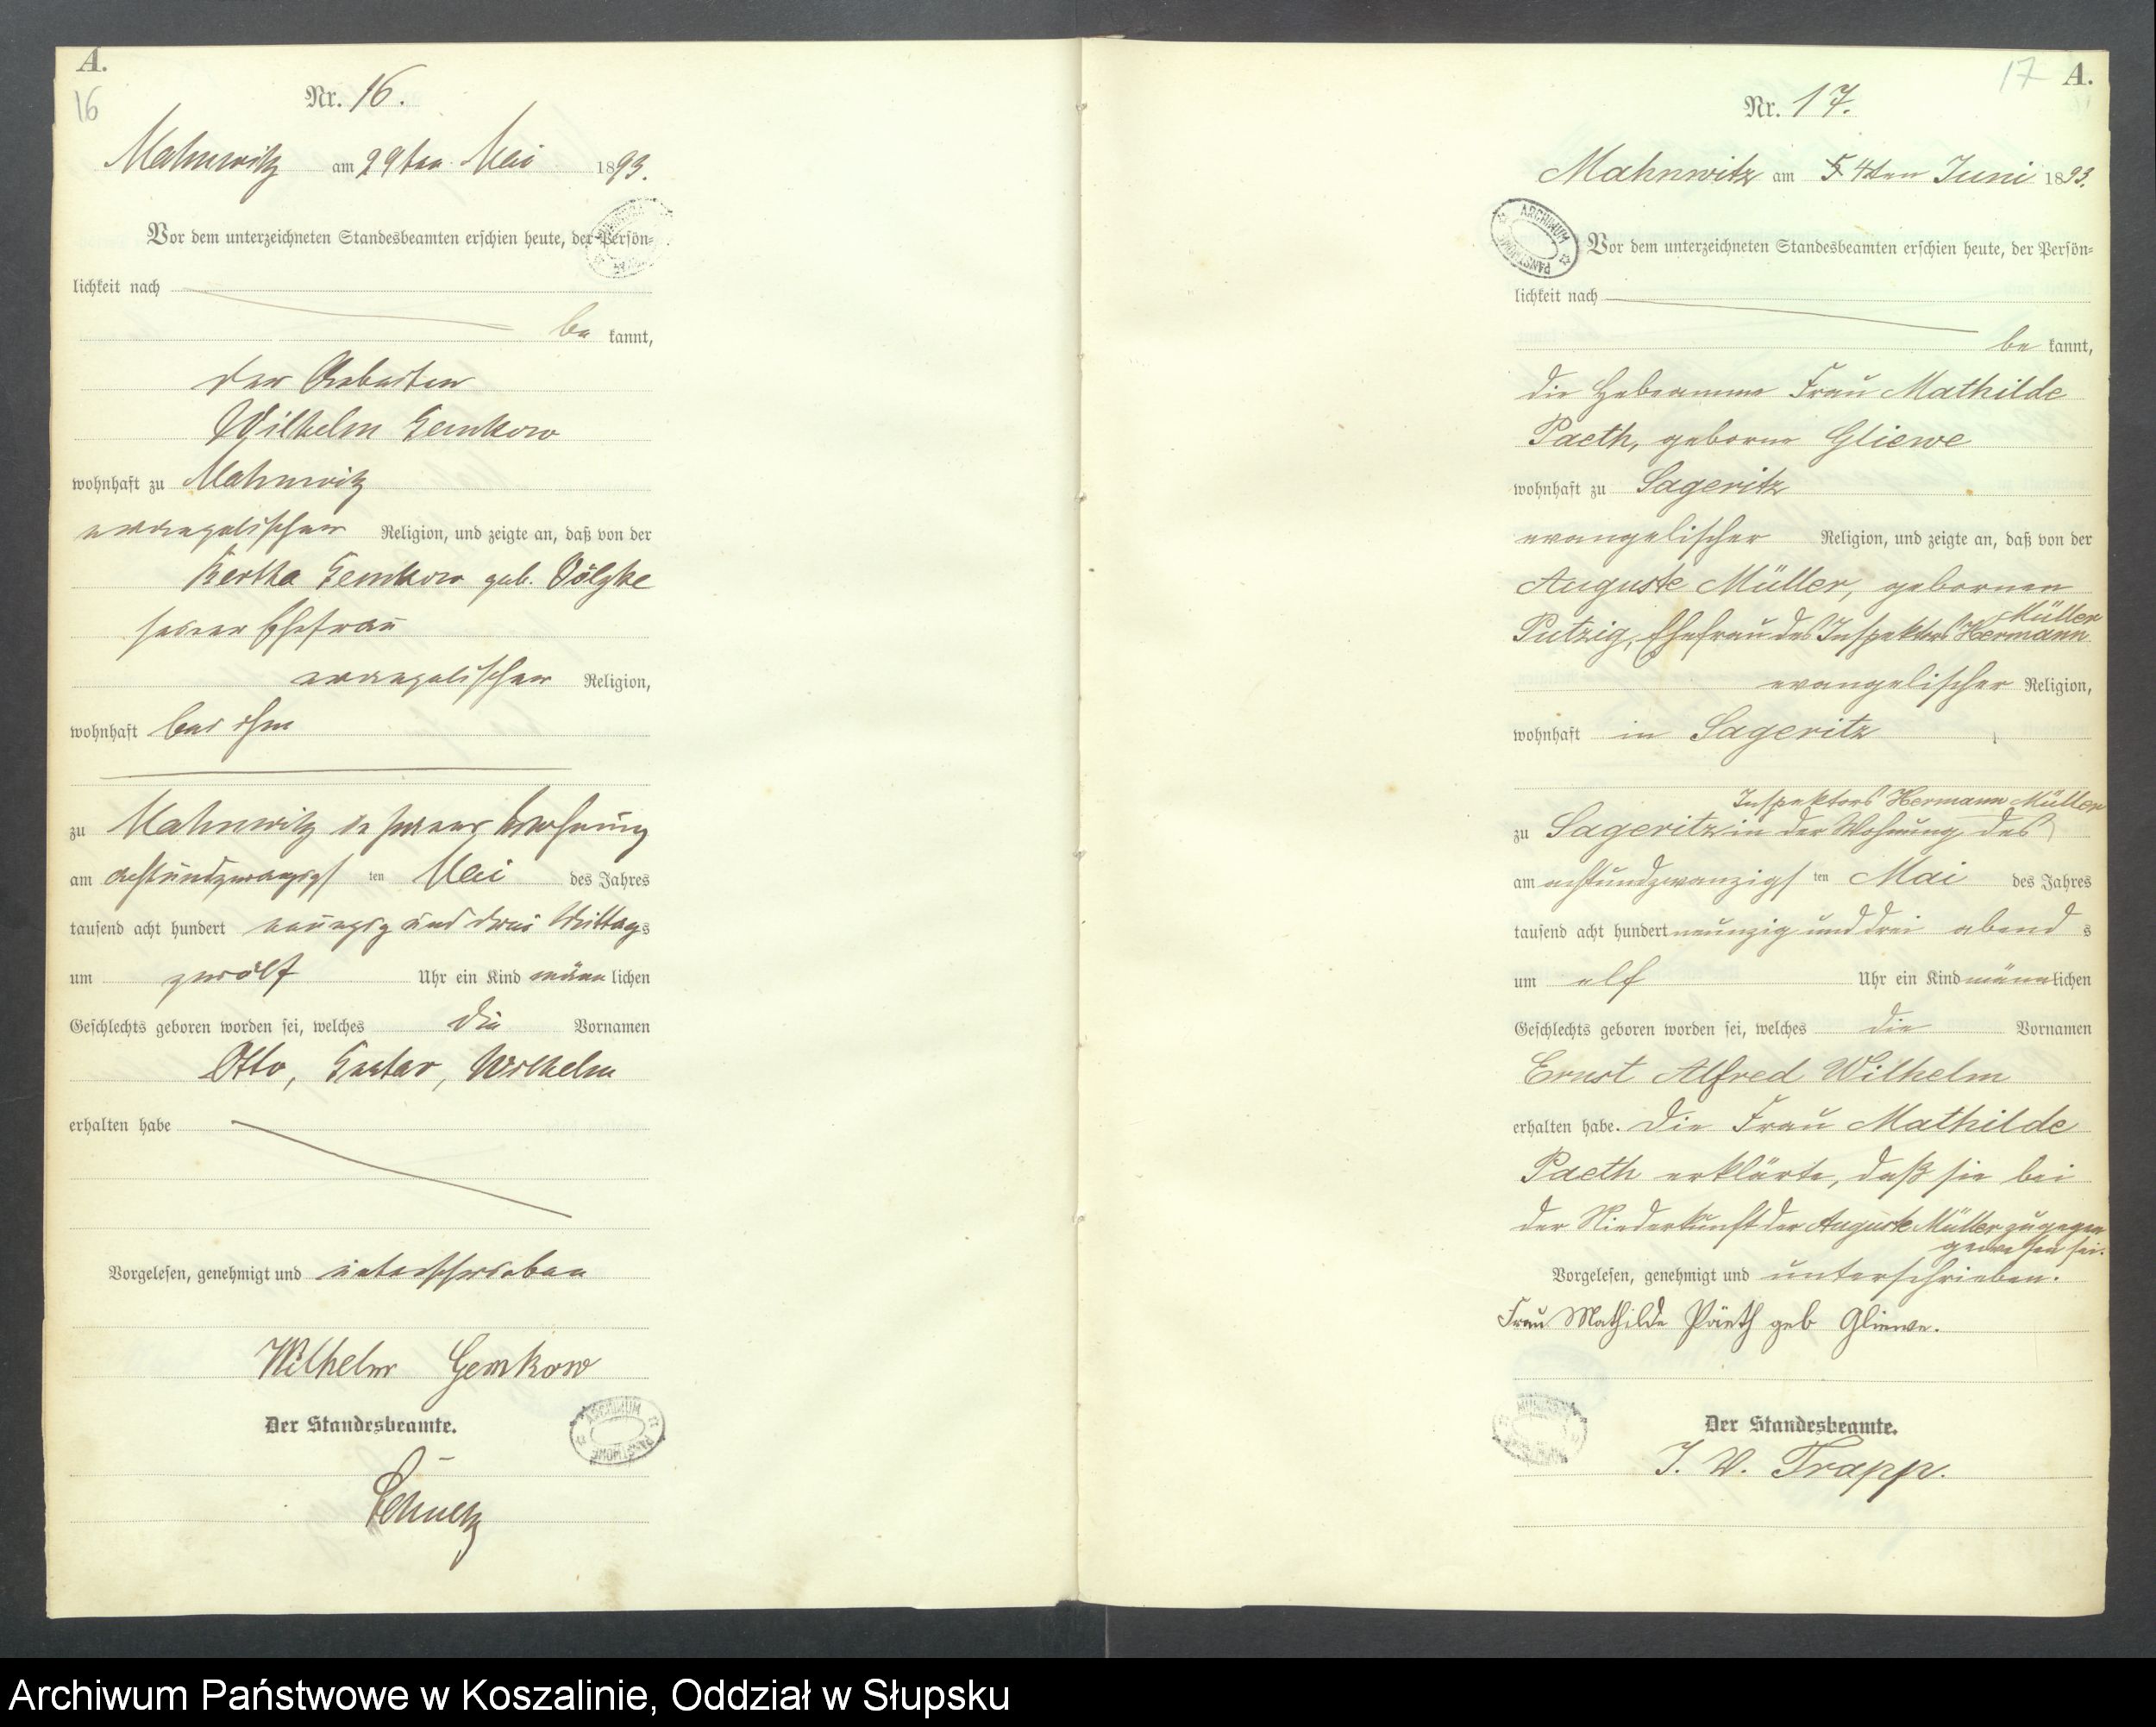 A.
16
Nr. 16.
Mahnwitz am 29ten Mai 1893.
Vor dem unterzeichneten Standesbeamten erschien heute, der Persön-
lichkeit nach
be kannt,
der Arbeiter
Wilhelm Gemkow
wohnhaft zu Mahnwitz
evangelischer Religion, und zeigte an, daß von der
Bertha Gemkow geb. Völzke
seiner Ehefrau
evangelischer Religion,
wohnhaft bei ihm
zu Mahnwitz in seiner Wohnung
am achtundzwanzigsten Mai des Jahres
tausend acht hundert neunzig und drei Mittags
um zwölf Uhr ein Kind männlichen
Geschlechts geboren worden sei, welches die Vornamen
Otto, Gustav, Wilhelm
erhalten habe
Vorgelesen, genehmigt und unterschrieben
Wilhelm Gemkow
Der Standesbeamte.
Schultz
ARCHIWUM PAŃSTWOWE
17 A.
Nr. 17.
Mahnwitz am 5 4ten Juni 1893.
ARCHIWUM PAŃSTWOWE
Vor dem unterzeichneten Standesbeamten erschien heute, der Persön-
lichkeit nach
be kannt,
die Hebeamme Frau Mathilde
Paeth, geborne Gliewe
wohnhaft zu Sageritz
evangelischer Religion, und zeigte an, daß von der
Auguste Müller, gebornen
Müller
Putzig, Ehefrau des Inspektors Hermann
evangelischer Religion,
wohnhaft in Sageritz
Inspektors Hermann Müller
zu Sageritz in der Wohnung des
am achtundzwanzigsten Mai des Jahres
tausend acht hundert neunzig und drei abends
um elf Uhr ein Kind männlichen
Geschlechts geboren worden sei, welches die Vornamen
Ernst Alfred Wilhelm
erhalten habe. Die Frau Mathilde
Paeth erklärte, daß sie bei
der Niederkunft der Auguste Müller zugegen
gewesen sei.
Vorgelesen, genehmigt und unterschrieben.
Frau Mathilde Päeth geb Gliewe.
Der Standesbeamte.
J. V. Trapp.
Archiwum Państwowe w Koszalinie, Oddział w Słupsku